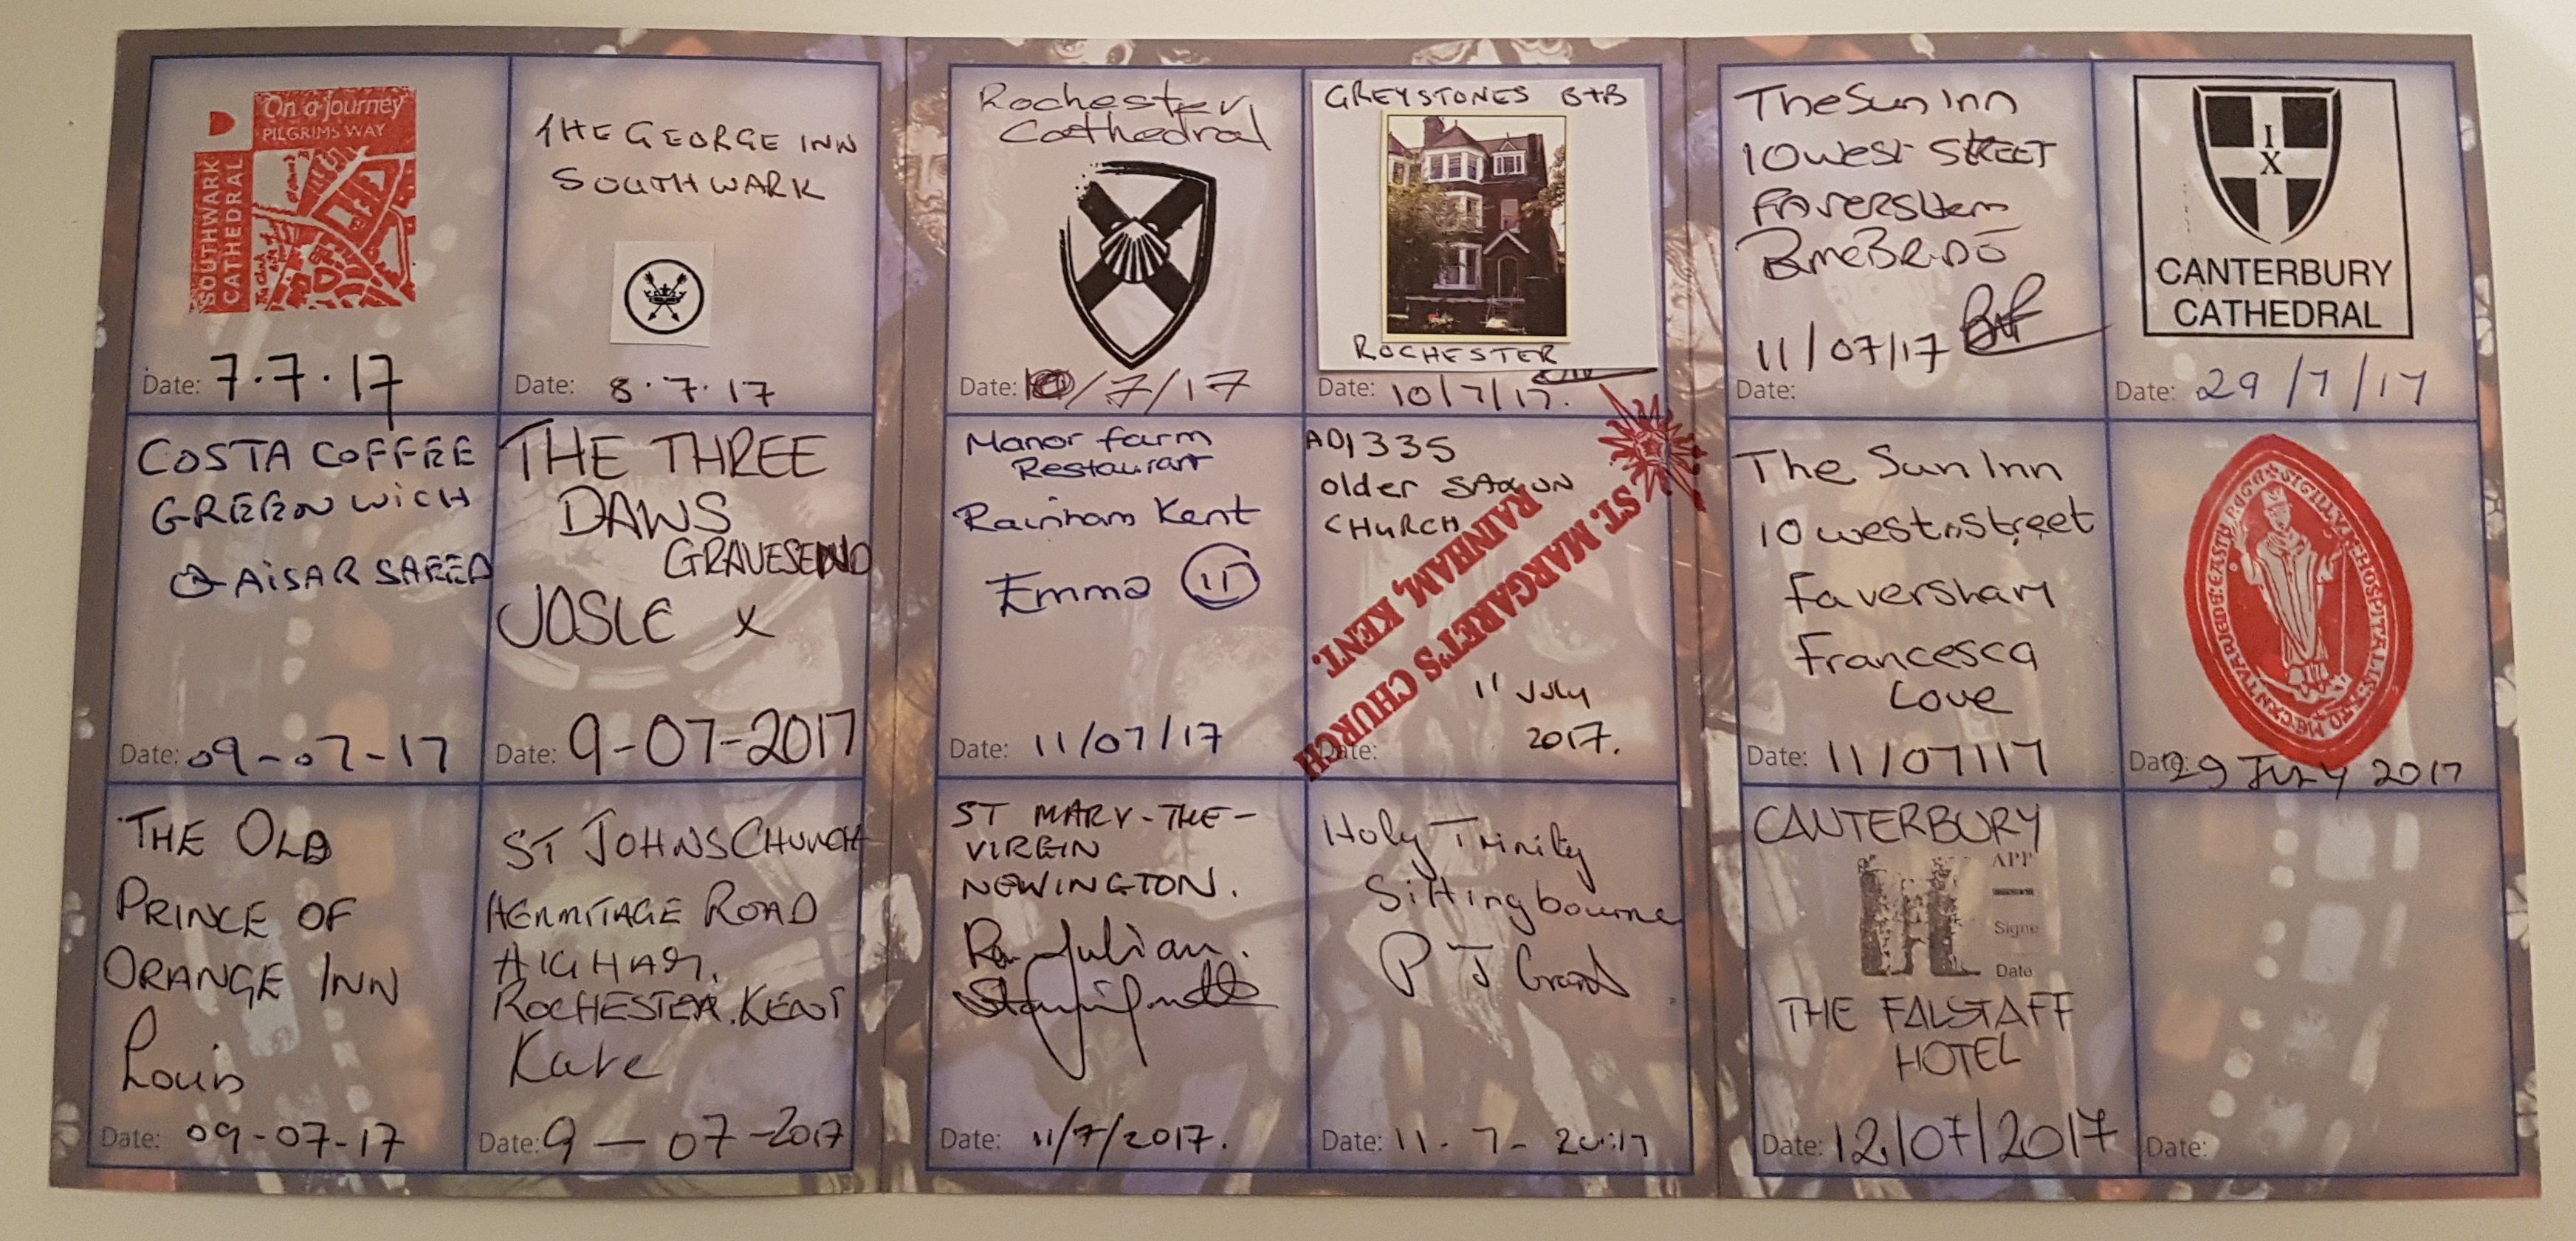 On a journey
PILGRIMS WAY
SOUTHWARK
CATHEDRAL
Date: 7.7.17
THE GEORGE INN
SOUTHWARK
Date: 8.7.17
COSTA COFFEE
GREENWICH
QAISAR SAEED
Date: 09-07-17
THE THREE
DAWS
GRAVESEND
JOSIE x
Date: 9-07-2017
THE OLD
PRINCE OF
ORANGE INN
Louis
Date: 09-07-17
ST JOHNS CHURCH
HERMITAGE ROAD
HIGHAM,
ROCHESTER. KENT
Kate
Date: 9-07-2017
Rochester
Cathedral
Date: 10/7/17
GREYSTONES B+B
ROCHESTER
Date: 10/7/17.
Manor farm
Restaurant
Rainham Kent
Emma
Date: 11/07/17
AD1335
older SAXON
CHURCH
ST. MARGARET'S CHURCH
RAINHAM, KENT.
11 July
2017.
Date:
ST MARY-THE-
VIRGIN
NEWINGTON.
Julian.
Date: 11/7/2017.
Holy Trinity
Sittingbourne
P J Grant
Date: 11-7-2017
The Sun Inn
10 west STREET
FAVERSHam
11/07/17
Date:
IX
CANTERBURY
CATHEDRAL
Date: 29/7/17
The Sun Inn
10 west street
Faversham
Francesca
Love
Date: 11/07/17
Date: 29 JULY 2017
CANTERBURY
APP
Signe
Date
THE FALSTAFF
HOTEL
Date: 12/07/2017
Date: